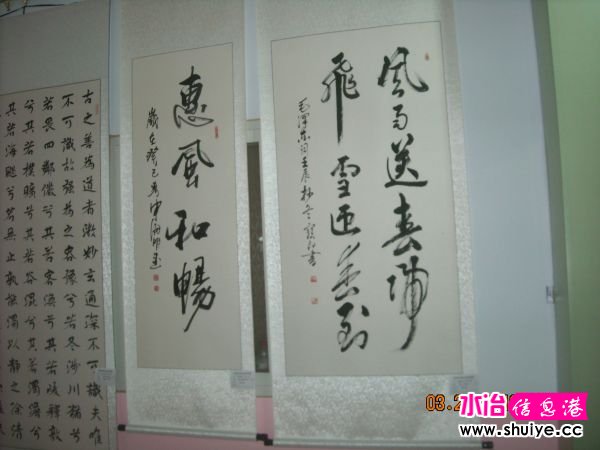 风雨送春归
飛雪迎春到
毛澤東词壬辰
惠風和暢
歲在癸巳
古之善為道者微妙玄通深不可識夫唯
不可識故強為之容豫兮若冬涉川猶兮
若畏四鄰儼兮其若客渙兮其若凌釋敦
兮其若樸曠兮其若谷混兮其若濁澹兮
其若海飂兮若無止孰能濁以靜之徐清
03.2
水冶信息港
www.shuiye.cc